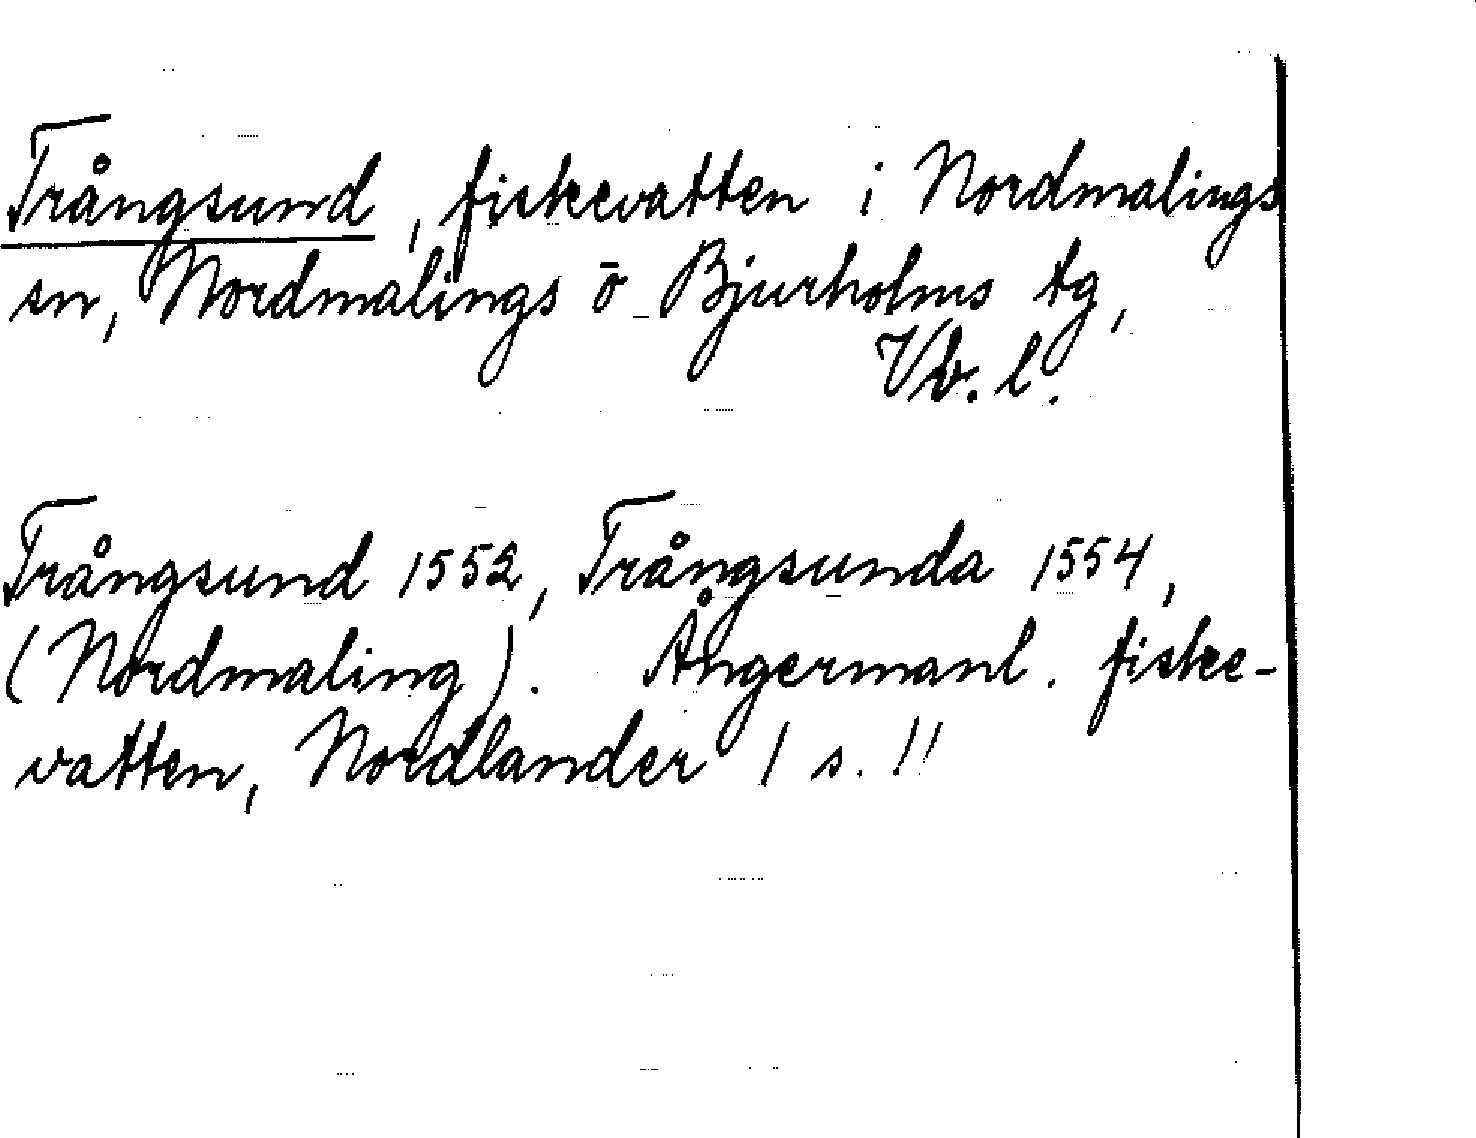 Trångsund, fiskevatten i Nordmalings
sn, Nordmalings o Bjurholms tg,
Vb. l.
Trångsund 1552, Trångsunda 1554,
(Nordmaling). Ångermanl. fiske-
vatten, Nordlander 1 s. 11